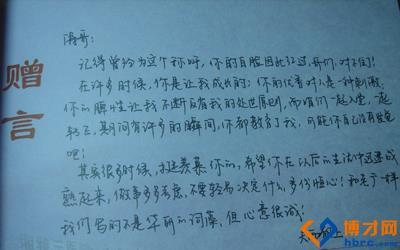 赠言
涛哥：
记得曾经为这个称呼，你的耳服因此红过，哥们，对不住！
在许多时候，你是让我成长的；你的优秀对人是一种刺激，
你的脾性让我不断反省我的处世原则，而咱们一起入堂，一起
期间有许多的瞬间，你都教育了我，可能你自己没有发觉
吧！
其实很多时候，挺羡慕你的，希望你在以后的生活中迅速成
熟起来，做事多考虑，不要轻易决定什么，多份恒心！和老广一样
我们写的不是华丽的词藻，但心意很诚！
博才网
hbrc.com